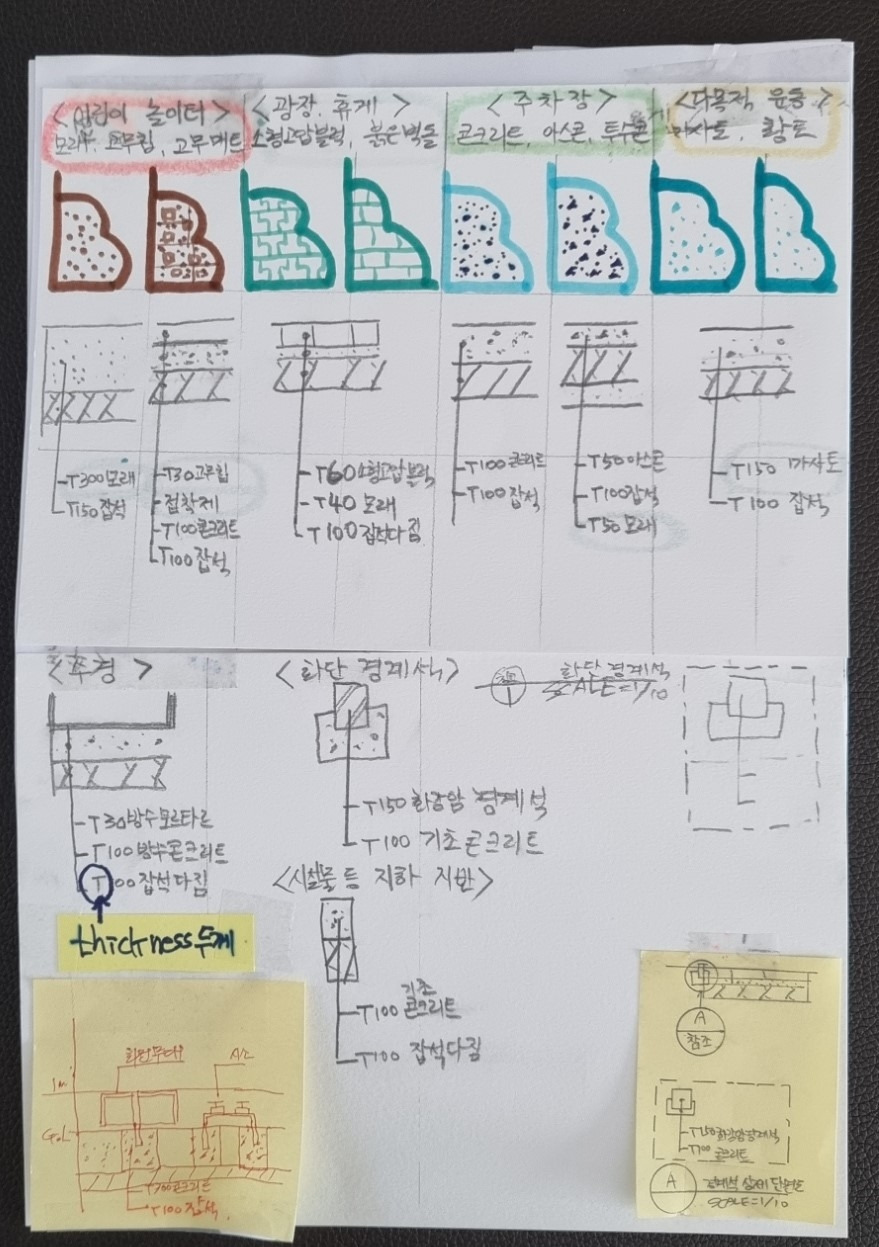 <어린이 놀이터>
모래, 고무칩, 고무매트
<광장. 휴게>
소형고압블럭, 붉은벽돌
<주차장>
콘크리트, 아스콘, 투수콘
<다목적 운동>
마사토, 황토
T300 모래
T150 잡석
T30고무칩
접착제
T100콘크리트
T100잡석
T60소형고압블럭
T40 모래
T100잡석다짐
T100콘크리트
T100잡석
T50아스콘
T100잡석
T50 모래
T150 마사토
T100 잡석
T30방수모르타르
T100방수콘크리트
T100잡석다짐
thickness두께
<화단 경계석>
T150 화강암 경계석
T100 기초콘크리트
화단 경계석
SCALE=1/10
<시설물 등 지하 지반>
기초
T100 콘크리트
T100 잡석다짐
1m
G.L
T100콘크리트
T100잡석
A
참조
T150화강암경계석
T100 콘크리트
A
경계석 상세 단면도
SCALE=1/10